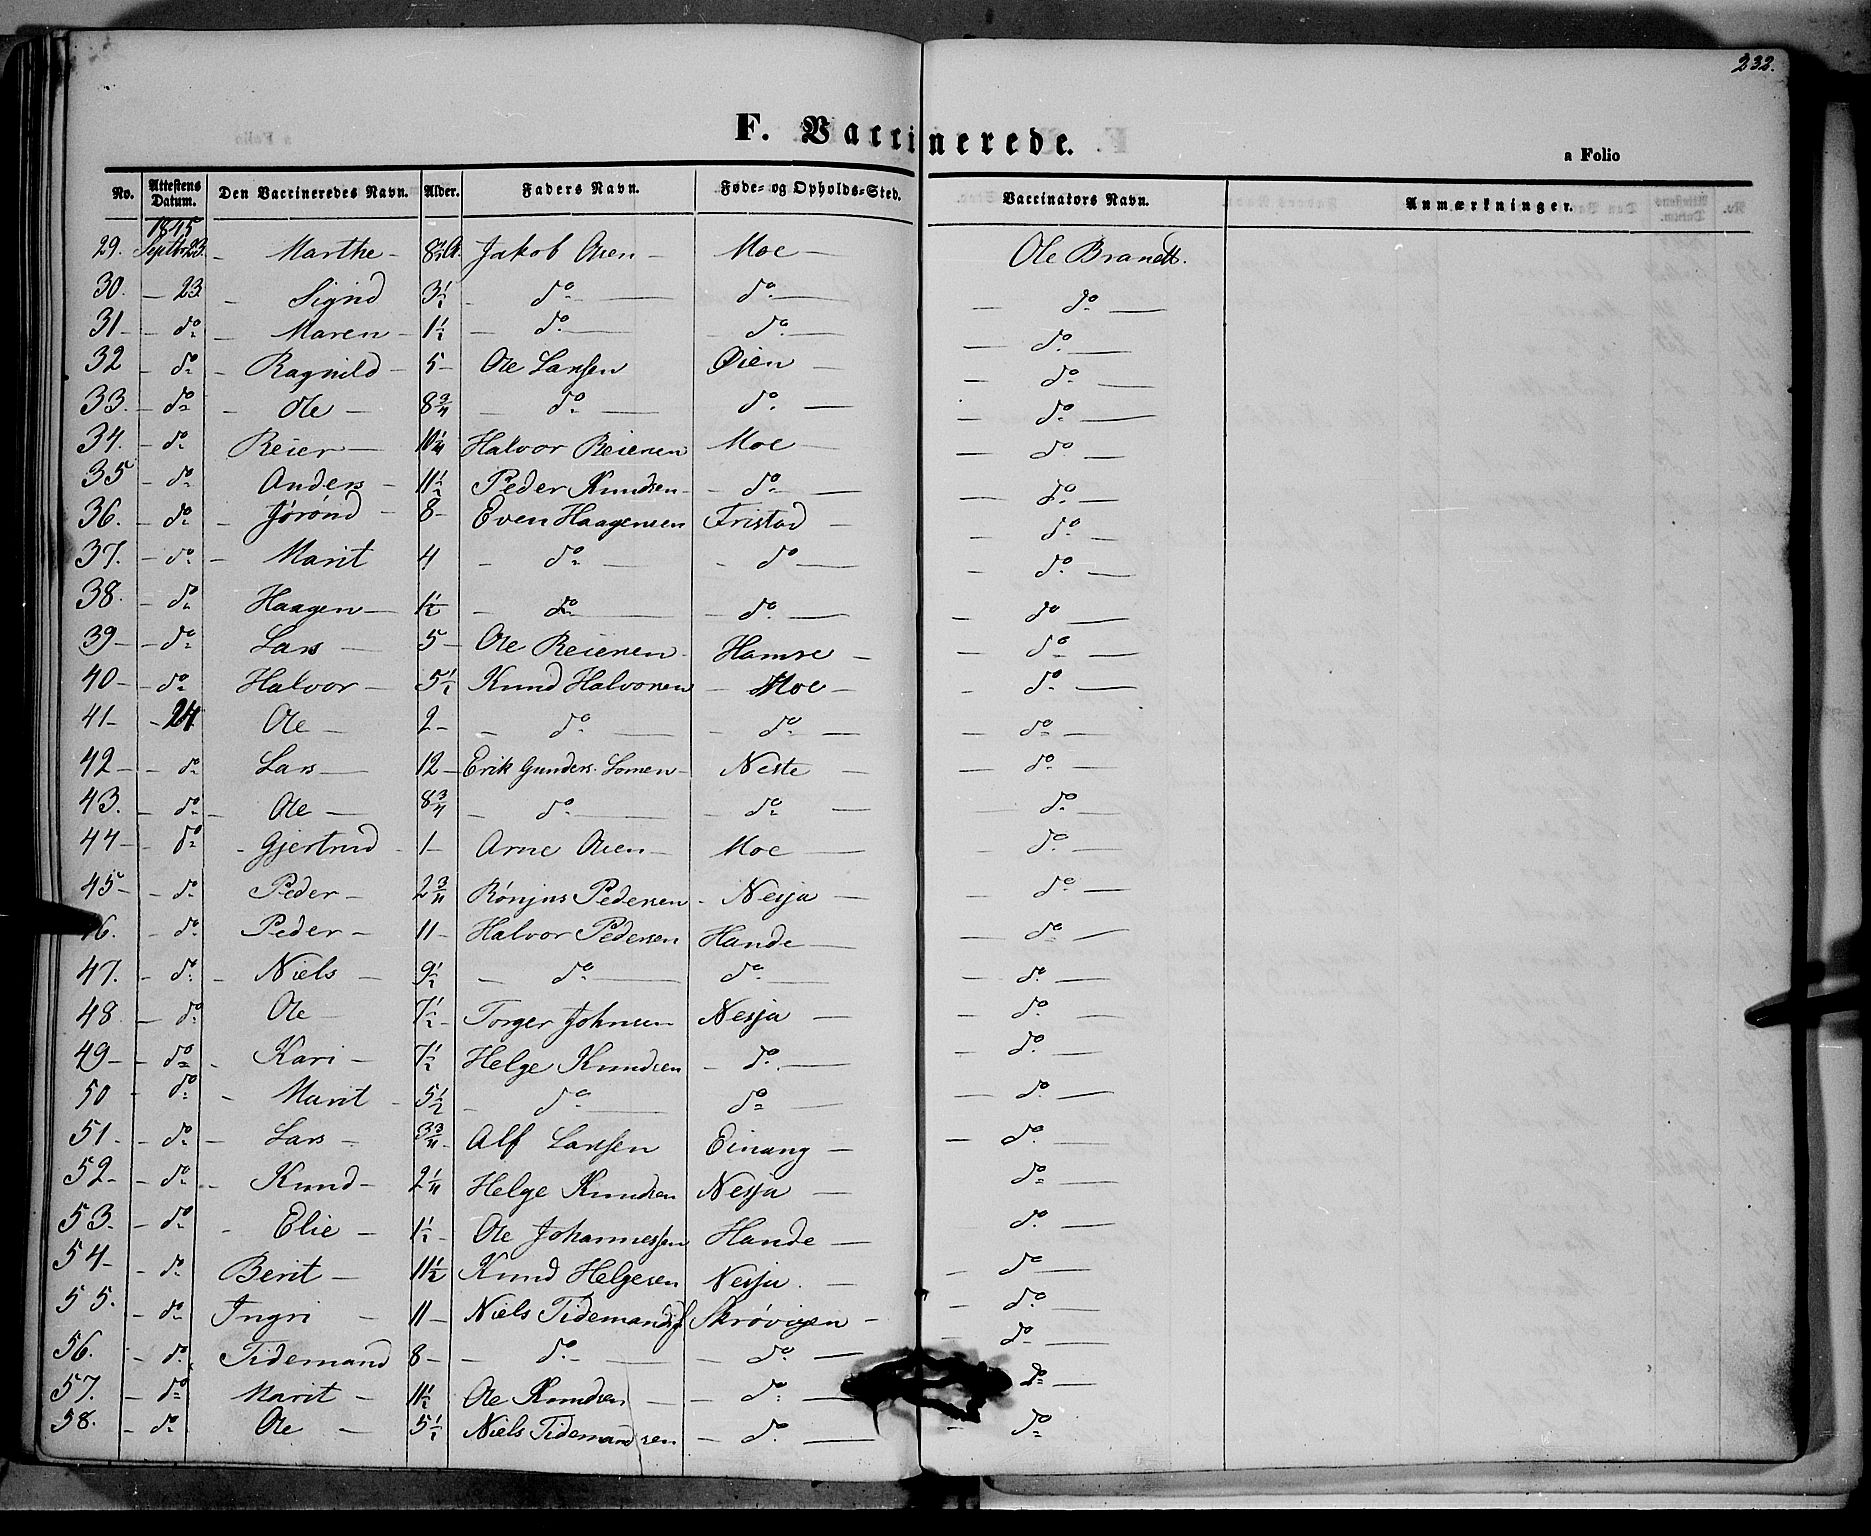 232.
F. Vaccinerede.
a Folio
No. Attestens Datum. Den Vaccineredes Navn. Alder. Faders Navn. Føde- og Opholds-Sted. Vaccinators Navn. Anmærkninger.
1845
29. Septbr 23. - Marthe - 8½ Jakob Olsen - Moe - Ole Brandt.
30. - 23 - Sigrid 3½ - do - do. - - do -
31 - do - Maren - 1½ - do - do. - - do. -
32 - do - Ragnild - 5 - Ole Larssen Øien - - do -
33. - do - Ole - 8¾ - do. - do. - - do. -
34. - do Reier - 10¼ Halvor Reiersen Moe - - do -
35 - do Anders - 11½ Peder Knudsen - - do. - - do -
36. - do - Jørønd - 8 - Even Haagensen Fristad - - do. -
37. - do - Marit 4 - do - - do - - do. -
38. - do. Haagen - 1½ - do - - do. - - do -
39 - - do Lars - 5 - Ole Reiersen - Hamre - - do -
40 - - do Halvor - 5½ Knud Halvorsen - Moe - - do -
41 - - 24 Ole - 2 - - do - - do. - - do -
42 - - do Lars - 12 - Erik Gunders. Lomen - Neste - - do. -
43. - do - Ole - 8¾ - do. - - do - - do -
44 - - do - Gjertrud - 1 - Arne Olsen - Moe - - do. -
45 - - do Peder - 2¾ Rønjus Pedersen - Nesja - - do -
46. - do. Peder - 11 - Halvor Pedersen Hande - - do -
47. - do. Niels - 9½ - do - do. - - do. -
48 - do. Ole - 7½ - Torger Johnsen Nesja - - do. -
49 - - do - Kari - 7½ Helge Knudsen - do. - - do. -
50 - do - Marit - 5½ - do - do - - do. -
51. - do - Lars - 3¾ - Alf Larssen Einang - - do. -
52 - - do - Knud - 2¼ Helge Knudsen Nesja - - do -
53. - do - Elie - 1½ - Ole Johannessen Hande - do. -
54 - - do Berit - 11½ Knud Helgesen Nesja. - - do -
55. - do Ingri - 11 - Niels Tidemands. Skrøvigen - - do. -
56. - do. Tidemand 8 - - do. - - do. - - do -
57. - do Marit - 11½ Ole Knudsen - - do. - do -
58. - do Ole - 5½ Niels Tidemandsen - do. - - do